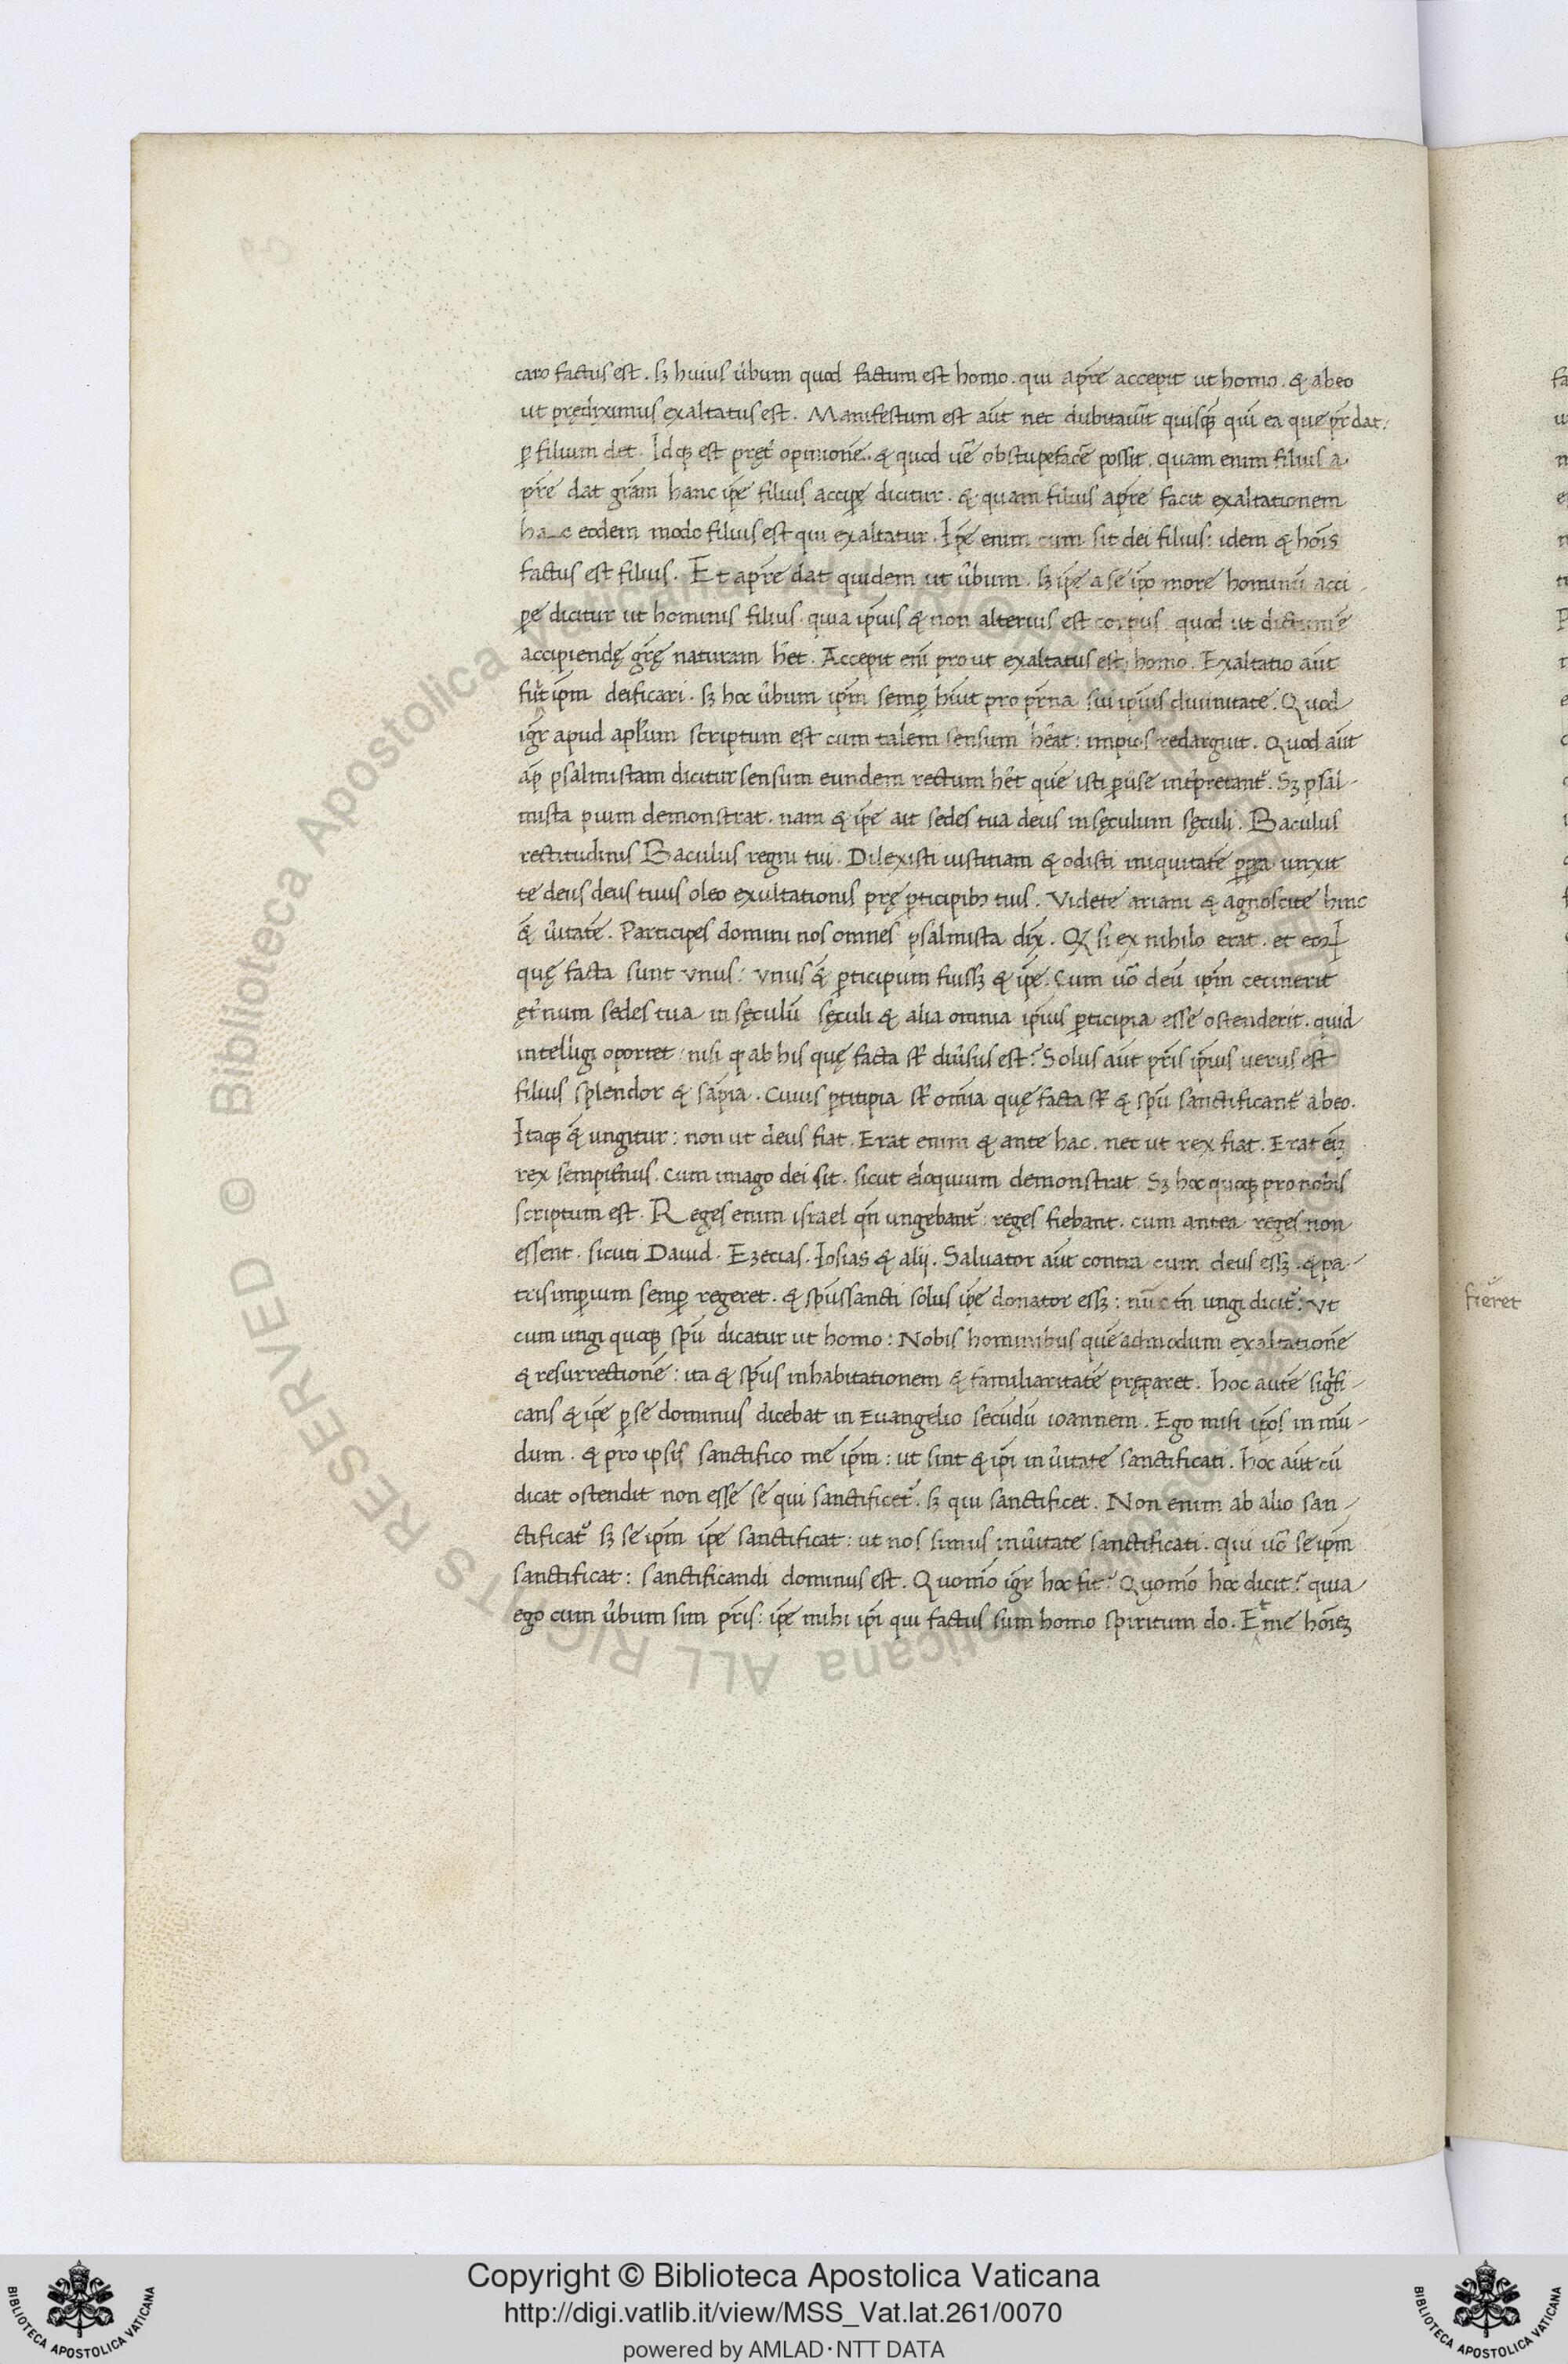 caro factus est. sꝫ huius ûbum quod factum est homo. qui apr̃e accepit ut homo. & abeo
ut prędiximus exaltatus est. Manifestum est aūt nec dubitauīt quisqꝫ quī ea que pr̃ dat:
ꝑ filium det. Idqꝫ est pręt̾ opinionē. & quod uē obstupefacē possit. quam enim filius a
pr̃e dat gr̃am hanc ip̄e filius acciꝑe dicitur. & quam filius apr̃e facit exaltationem
hanc eodem modo filius est qui exaltatur. Ip̄e enim cum sit dei filius: idem & hoīs
factus est filius. Et apr̃e dat quidem ut ûbum. sꝫ ip̄e a se ip̄o more hominū acci
ꝑe dicitur ut hominis filius. quia ip̄ius & non alterius est corpus. quod ut dictum ē
accipiendę gr̃ę naturam h̄et. Accepit em̄ pro ut exaltatus est homo. Exaltatio aūt
fuit ip̄m deificari. sꝫ hoc ûbum ip̄m semꝑ h̄uit pro pr̃na sui ip̄ius diuinitate. Quod
igr̃ apud apl̄um scriptum est cum talem sensum h̄eat: impios redarguit. Quod aūt
ap̄ psalmistam dicitur sensum eundem rectum h̄et quē isti ꝑuīse int̾pretant̾. Sꝫ psal-
mista pium demonstrat. nam & ip̄e ait sedes tua deus in sęculum sęculi. Baculus
rectitudinis Baculus regni tui. Dilexisti iustitiam & odisti iniquitatē ꝓꝑea unxit
te deus deus tuus oleo exultationis prę ꝑticipibꝫ tuis. Videte ariani & agnoscite hinc
& ûitatē. Participes domini nos omnes psalmista dix̄. Qđ si ex nihilo erat. et eoꝝ
quę facta sunt vnus: vnus & ꝑticipum fuissꝫ & ip̄e. Cum uō deū ip̄m cecinerit
ęt̾num sedes tua in sęculū sęculi & alia omnia ip̄ius ꝑticipia esse ostenderit. quid
intelligi oportet: nisi ꝙ ab his quę facta sr̄ diûsus est? Solus aūt pr̃is ip̄ius uerus est
filius splendor & sap̄ia. Cuius ꝑtitipia sr̄ om̄ia quę facta sr̄ & spū sanctificant̾ abeo.
Itaqꝫ & ungitur: non ut deus fiat. Erat enim & ante hac. nec ut rex fiat. Erat eīꝫ
rex sempit̾nus. cum imago dei sit. sicut eloquium demonstrat Sꝫ hoc quoqꝫ pro nobis
scriptum est. Reges enim israel qn̄ ungebant̾: reges fiebant. cum antea reges non
essent. sicuti Dauid. Ezecias. Iosias & alij. Saluator aūt contra cum deus essꝫ. & pa-
tris imꝑium semꝑ regeret. & spūssancti solus ip̄e donator essꝫ: nūc tn̄ ungi dicit̾: Vt
cum ungi quoqꝫ spū dicatur ut homo: Nobis hominibus quēadmodum exaltationē
& resurrectionē: ita & sp̄us inhabitationem & familiaritatē pręparet. hoc autē sigl̄fi-
cans & ip̄e ꝑ se dominus dicebat in Euangelio secūdū ioannem. Ego misi ip̄os in mū-
dum. & pro ipsis sanctifico me ip̄m: ut sint & ip̄i in ûitate sanctificati. hoc aūt cū
dicat ostendit non esse se qui sanctificet̾. sꝫ qui sanctificet. Non enim ab alio san-
ctificat̾ sꝫ se ip̄m ip̄e sanctificat: ut nos simus in ûitate sanctificati. qui uō se ip̄m
sanctificat: sanctificandi dominus est. Quomō igr̃ hoc fit? Quomō hoc dicit? quia
ego cum ûbum sim pr̃is: ip̄e mihi ip̄i qui factus sum homo spiritum do. Et me hoīeꝫ
fieret
© Biblioteca Apostolica Vaticana ALL RIGHTS RESERVED
Copyright © Biblioteca Apostolica Vaticana
http://digi.vatlib.it/view/MSS_Vat.lat.261/0070
powered by AMLAD·NTT DATA
BIBLIOTECA APOSTOLICA VATICANA
BIBLIOTECA APOSTOLICA VATICANA